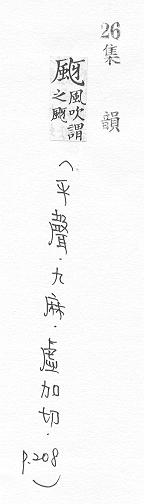 26集韻
颬
風吹謂
之颬
(平聲.九麻.虛加切.p.208)